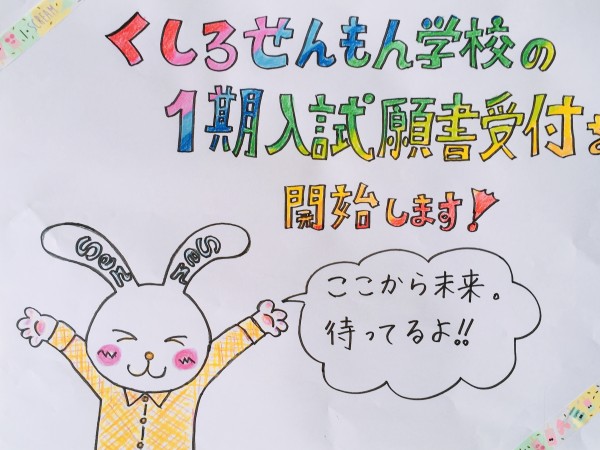 くしろせんもん学校の
1期入試願書受付を
開始します!
Sen
Sen
ここから未来。
待ってるよ!!